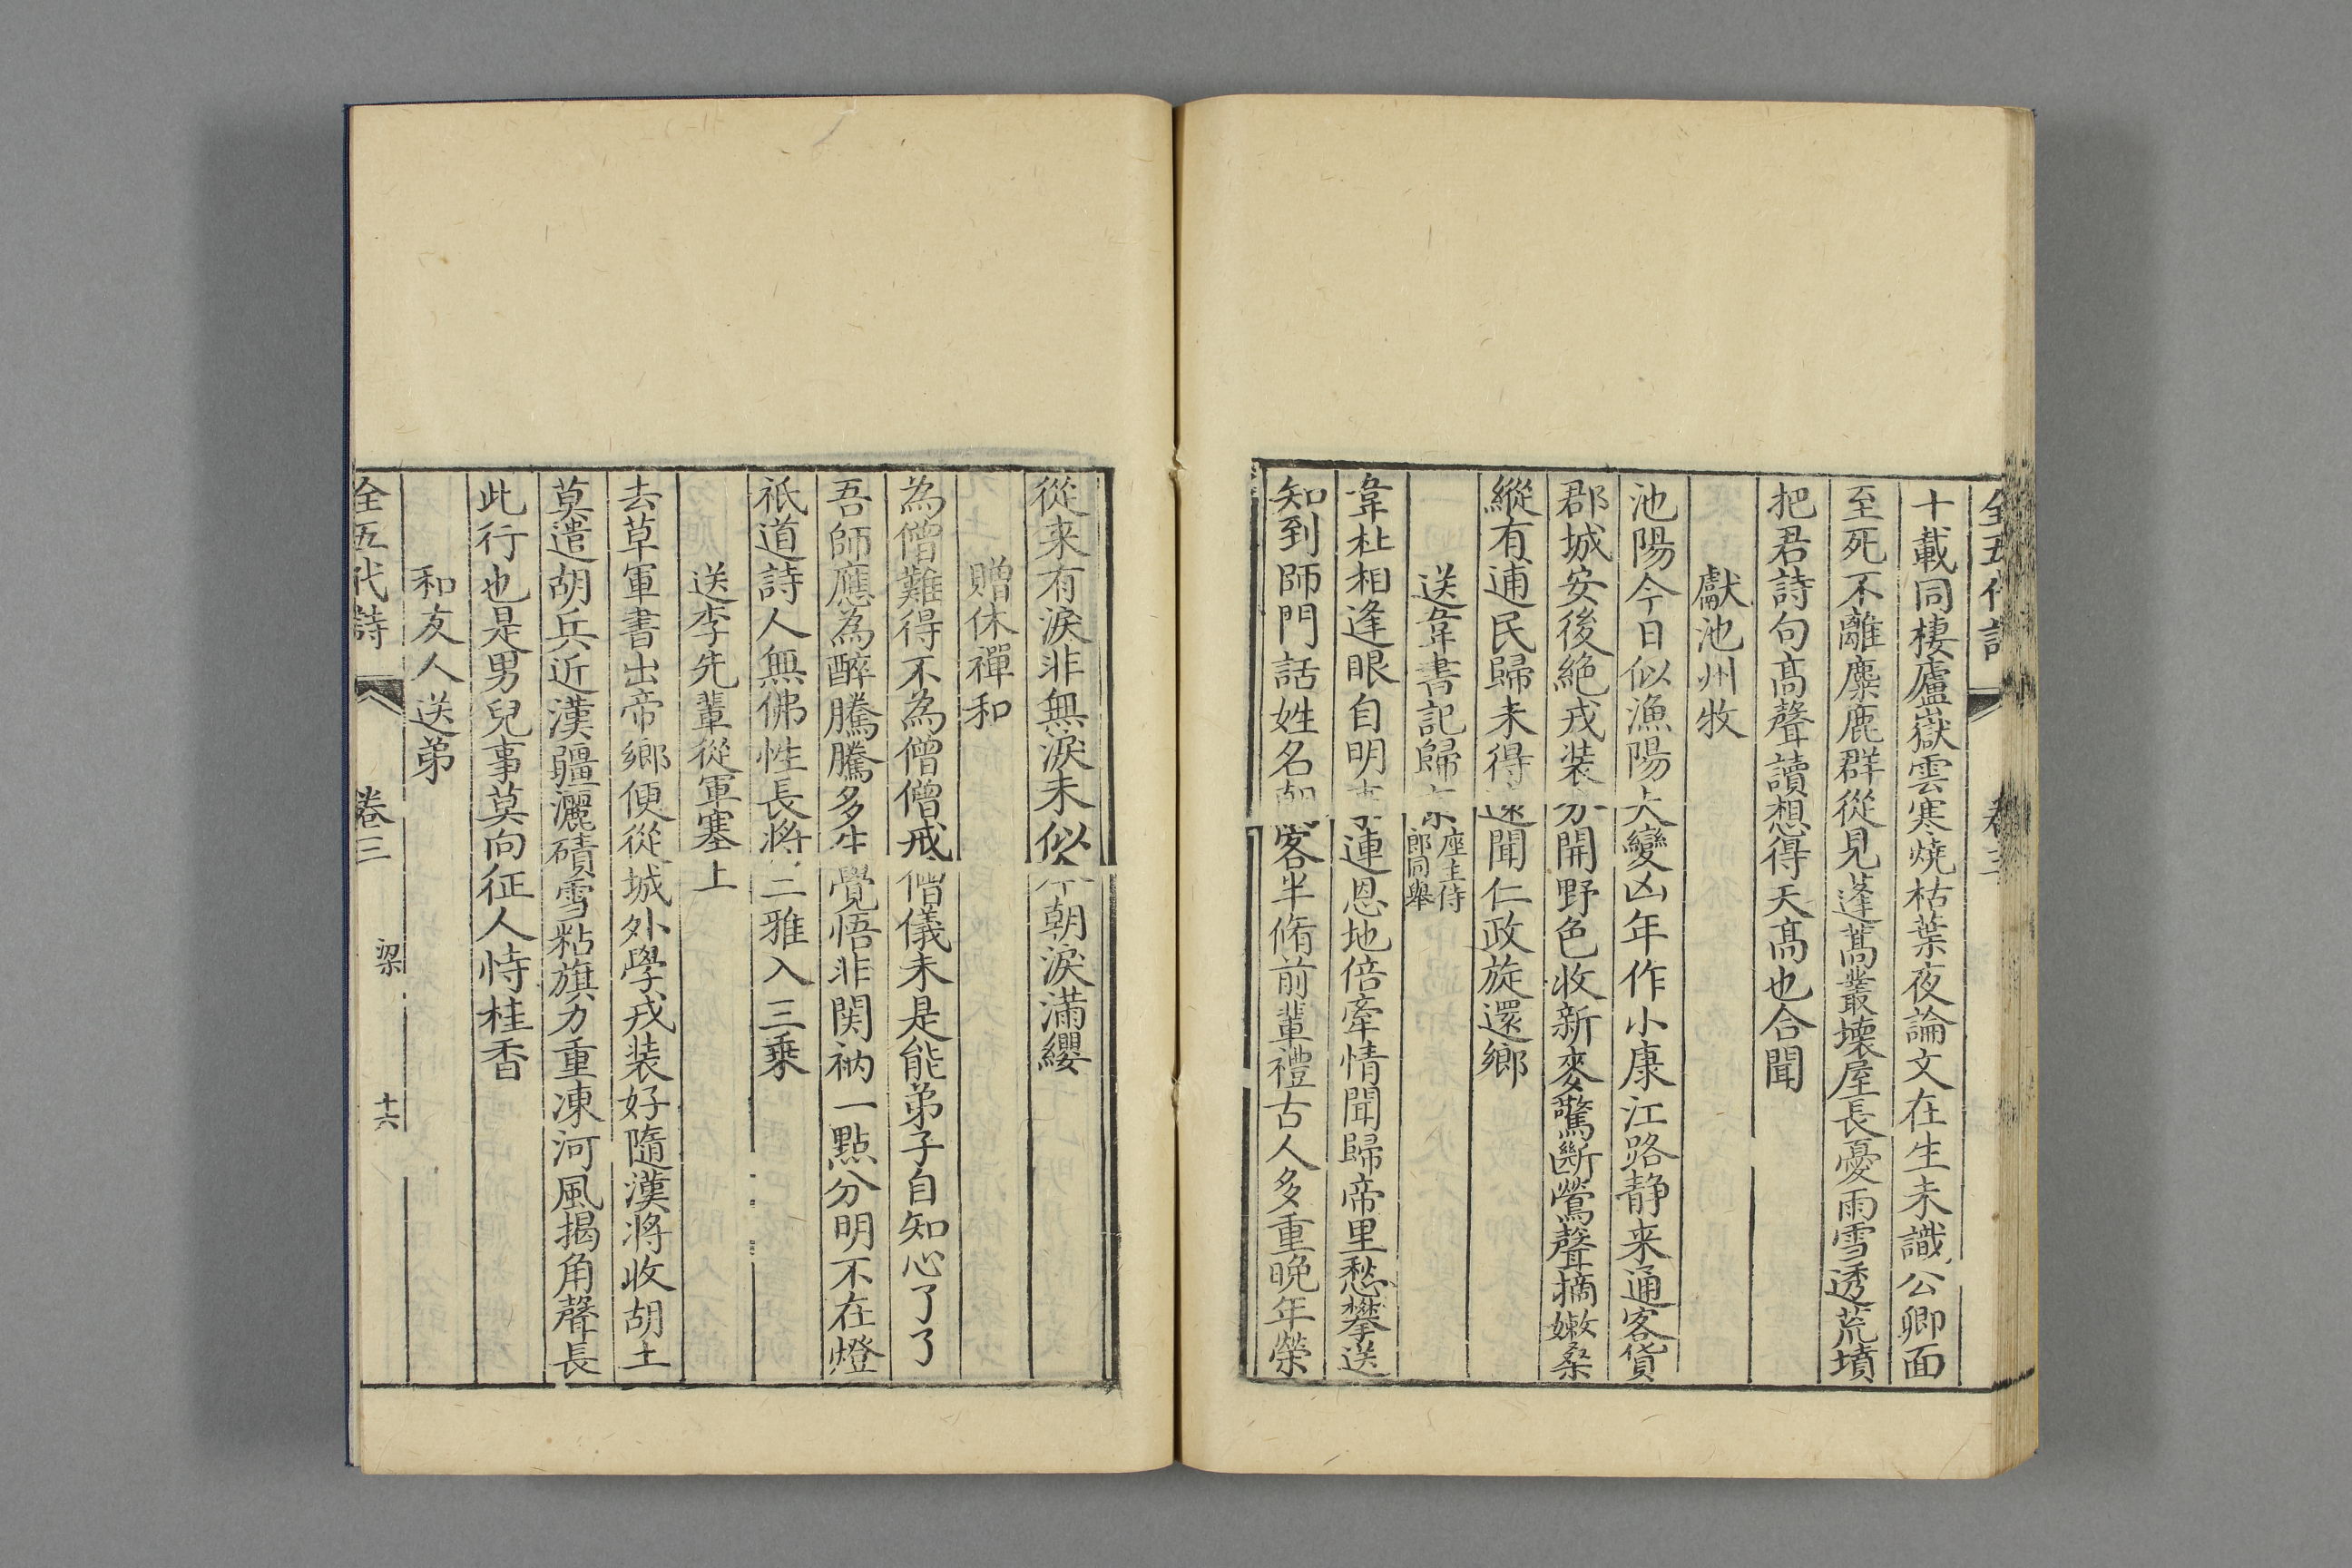 全五代詩 卷三
十載同棲廬嶽雲寒燒枯葉夜論文在生未識公卿面
至死不離麋鹿群從見蓬蒿叢壞屋長憂雨雪透荒墳
把君詩句髙聲讀想得天髙也合聞
獻池州牧
池陽今日似漁陽大變凶年作小康江路静来通客貨
郡城安後絶戎装分開野色收新麥驚斷鶯聲摘嫩桑
縱有逋民歸未得遠聞仁政旋還鄉
送韋書記歸京 座主侍郎同舉
韋杜相逢眼自明事連恩地倍牽情聞歸帝里愁攀送
知到師門話姓名朝客半脩前輩禮古人多重晚年榮
從来有淚非無淚未似今朝淚滿纓
贈休禪和
為僧難得不為僧僧戒僧儀未是能弟子自知心了了
吾師應為醉騰騰多生覺悟非関衲一點分明不在燈
祇道詩人無佛性長將二雅入三乗
送李先輩從軍塞上
去草軍書出帝鄉便從城外學戎装好隨漢將收胡土
莫遣胡兵近漢疆灑磧雪粘旗力重凍河風揭角聲長
此行也是男兒事莫向征人恃桂香
和友人送弟
全五代詩 卷三 梁 十六